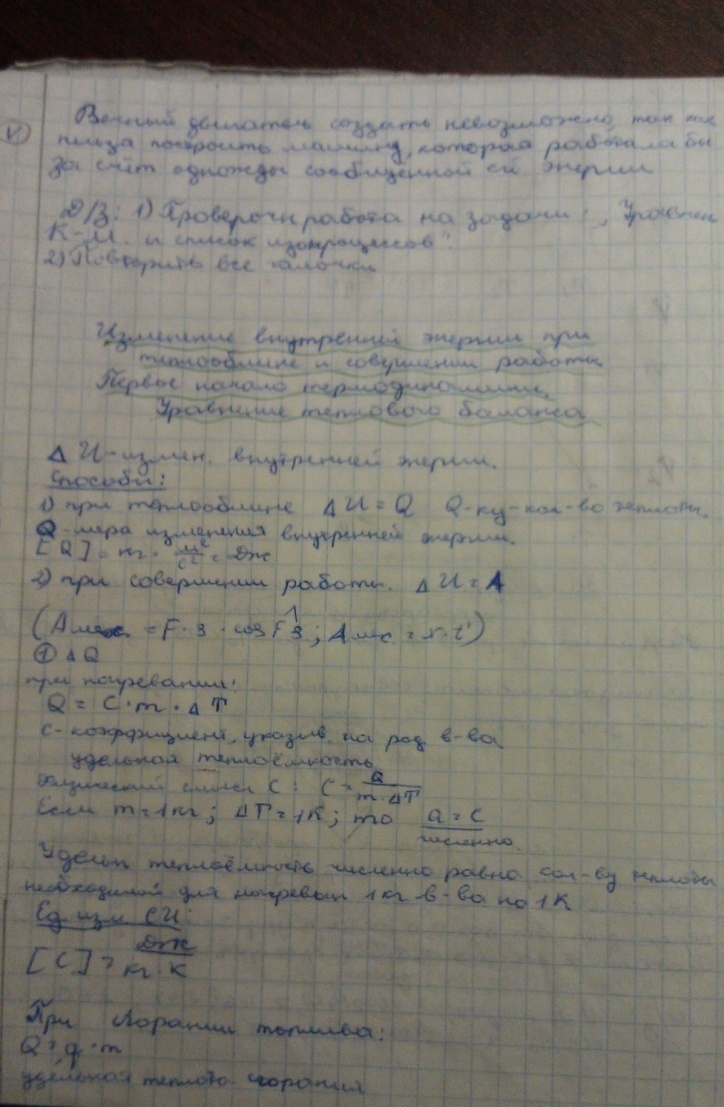 Вечный двигатель создать невозможно, так как
нельзя построить машину, которая работала бы
за счёт однажды сообщенной ей энергии
Д/З: 1) Проверочн работа на задачи: „Уравнен
К-М. и список изопроцессов"
2) Повторить все
Изменение внутренней энергии при
теплообмене и совершении работы
Первое начало термодинамики.
Уравнение теплового баланса
Δ U - измен. внутренней энергии.
Способы:
1) при теплообмене Δ U = Q Q - кол-во теплоты.
Q - мера изменения внутренней энергии.
[Q] = кг · м²/с² = Дж
2) при совершении работы. Δ U = A
(Aмех = F · s · cos F^s; Aмех = N · t)
① Δ Q
при нагревании:
Q = C · m · Δ T
c - коэффициент, указыв. на род в-ва
удельная теплоёмкость
Физический смысл C: C = Q/m · ΔT
Если m = 1 кг; ΔT = 1K; то Q = C
численно.
Удельн теплоёмкость численно равна кол-ву теплоты
необходимой для нагреван 1 кг в-ва на 1K
Ед. изм СИ:
[C] = Дж/кг · K
При сгорании топлива:
Q = q · m
удельная теплота сгорания